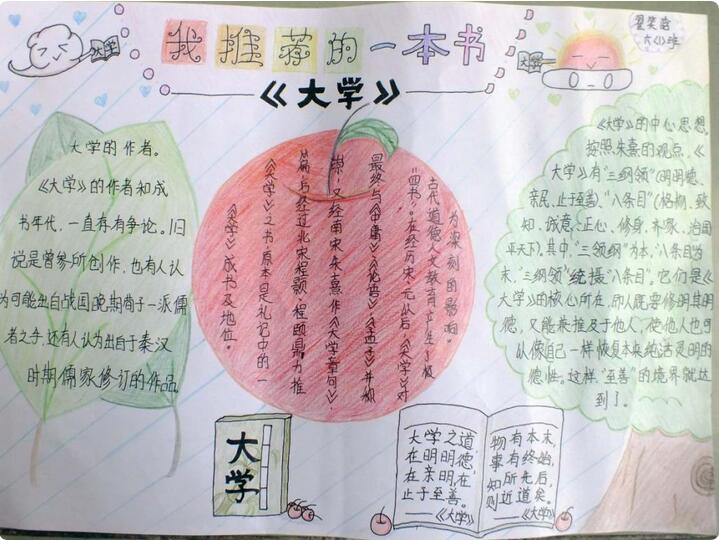 我推荐的一本书
《大学》
大学
大学
六(1)班
大学的作者。
《大学》的作者和成
书年代,一直存有争论。旧
说是曾参所创作,也有人认
为可能出自战国晚期荀子一派儒
者之手,还有人认为出自于秦汉
时期儒家修订的作品
《大学》成书及地位。
《大学》之书原本是礼记中的一
篇与经过北宋程颢、程颐竭力推
崇,又经南宋朱熹作《大学章句》,
最终与《中庸》《论语》《孟子》并称
"四书"。在经历宋、元以后,《大学》对
古代道德人文教育产生了极
为深刻的影响。
《大学》的中心思想。
按照朱熹的观点,《
大学》有"三纲领"(明明德、
亲民、止于至善)、"八条目"(格物、致
知、诚意、正心、修身、齐家、治国
平天下)。其中,"三领纲"为本,"八条目"为
末,"三纲领"统摄"八条目"。它们是《
大学》的核心所在,即人既要修明其明
德,又能兼推及于他人,使他人也可
以像自己一样恢复本来纯洁灵明的
德性。这样,"至善"的境界就达
到了。
大学
大学之道,
在明明德,
在亲明,在
止于至善。
——《大学》
物有本末,
事有终始,
知所先后,
则近道矣。
——《大学》